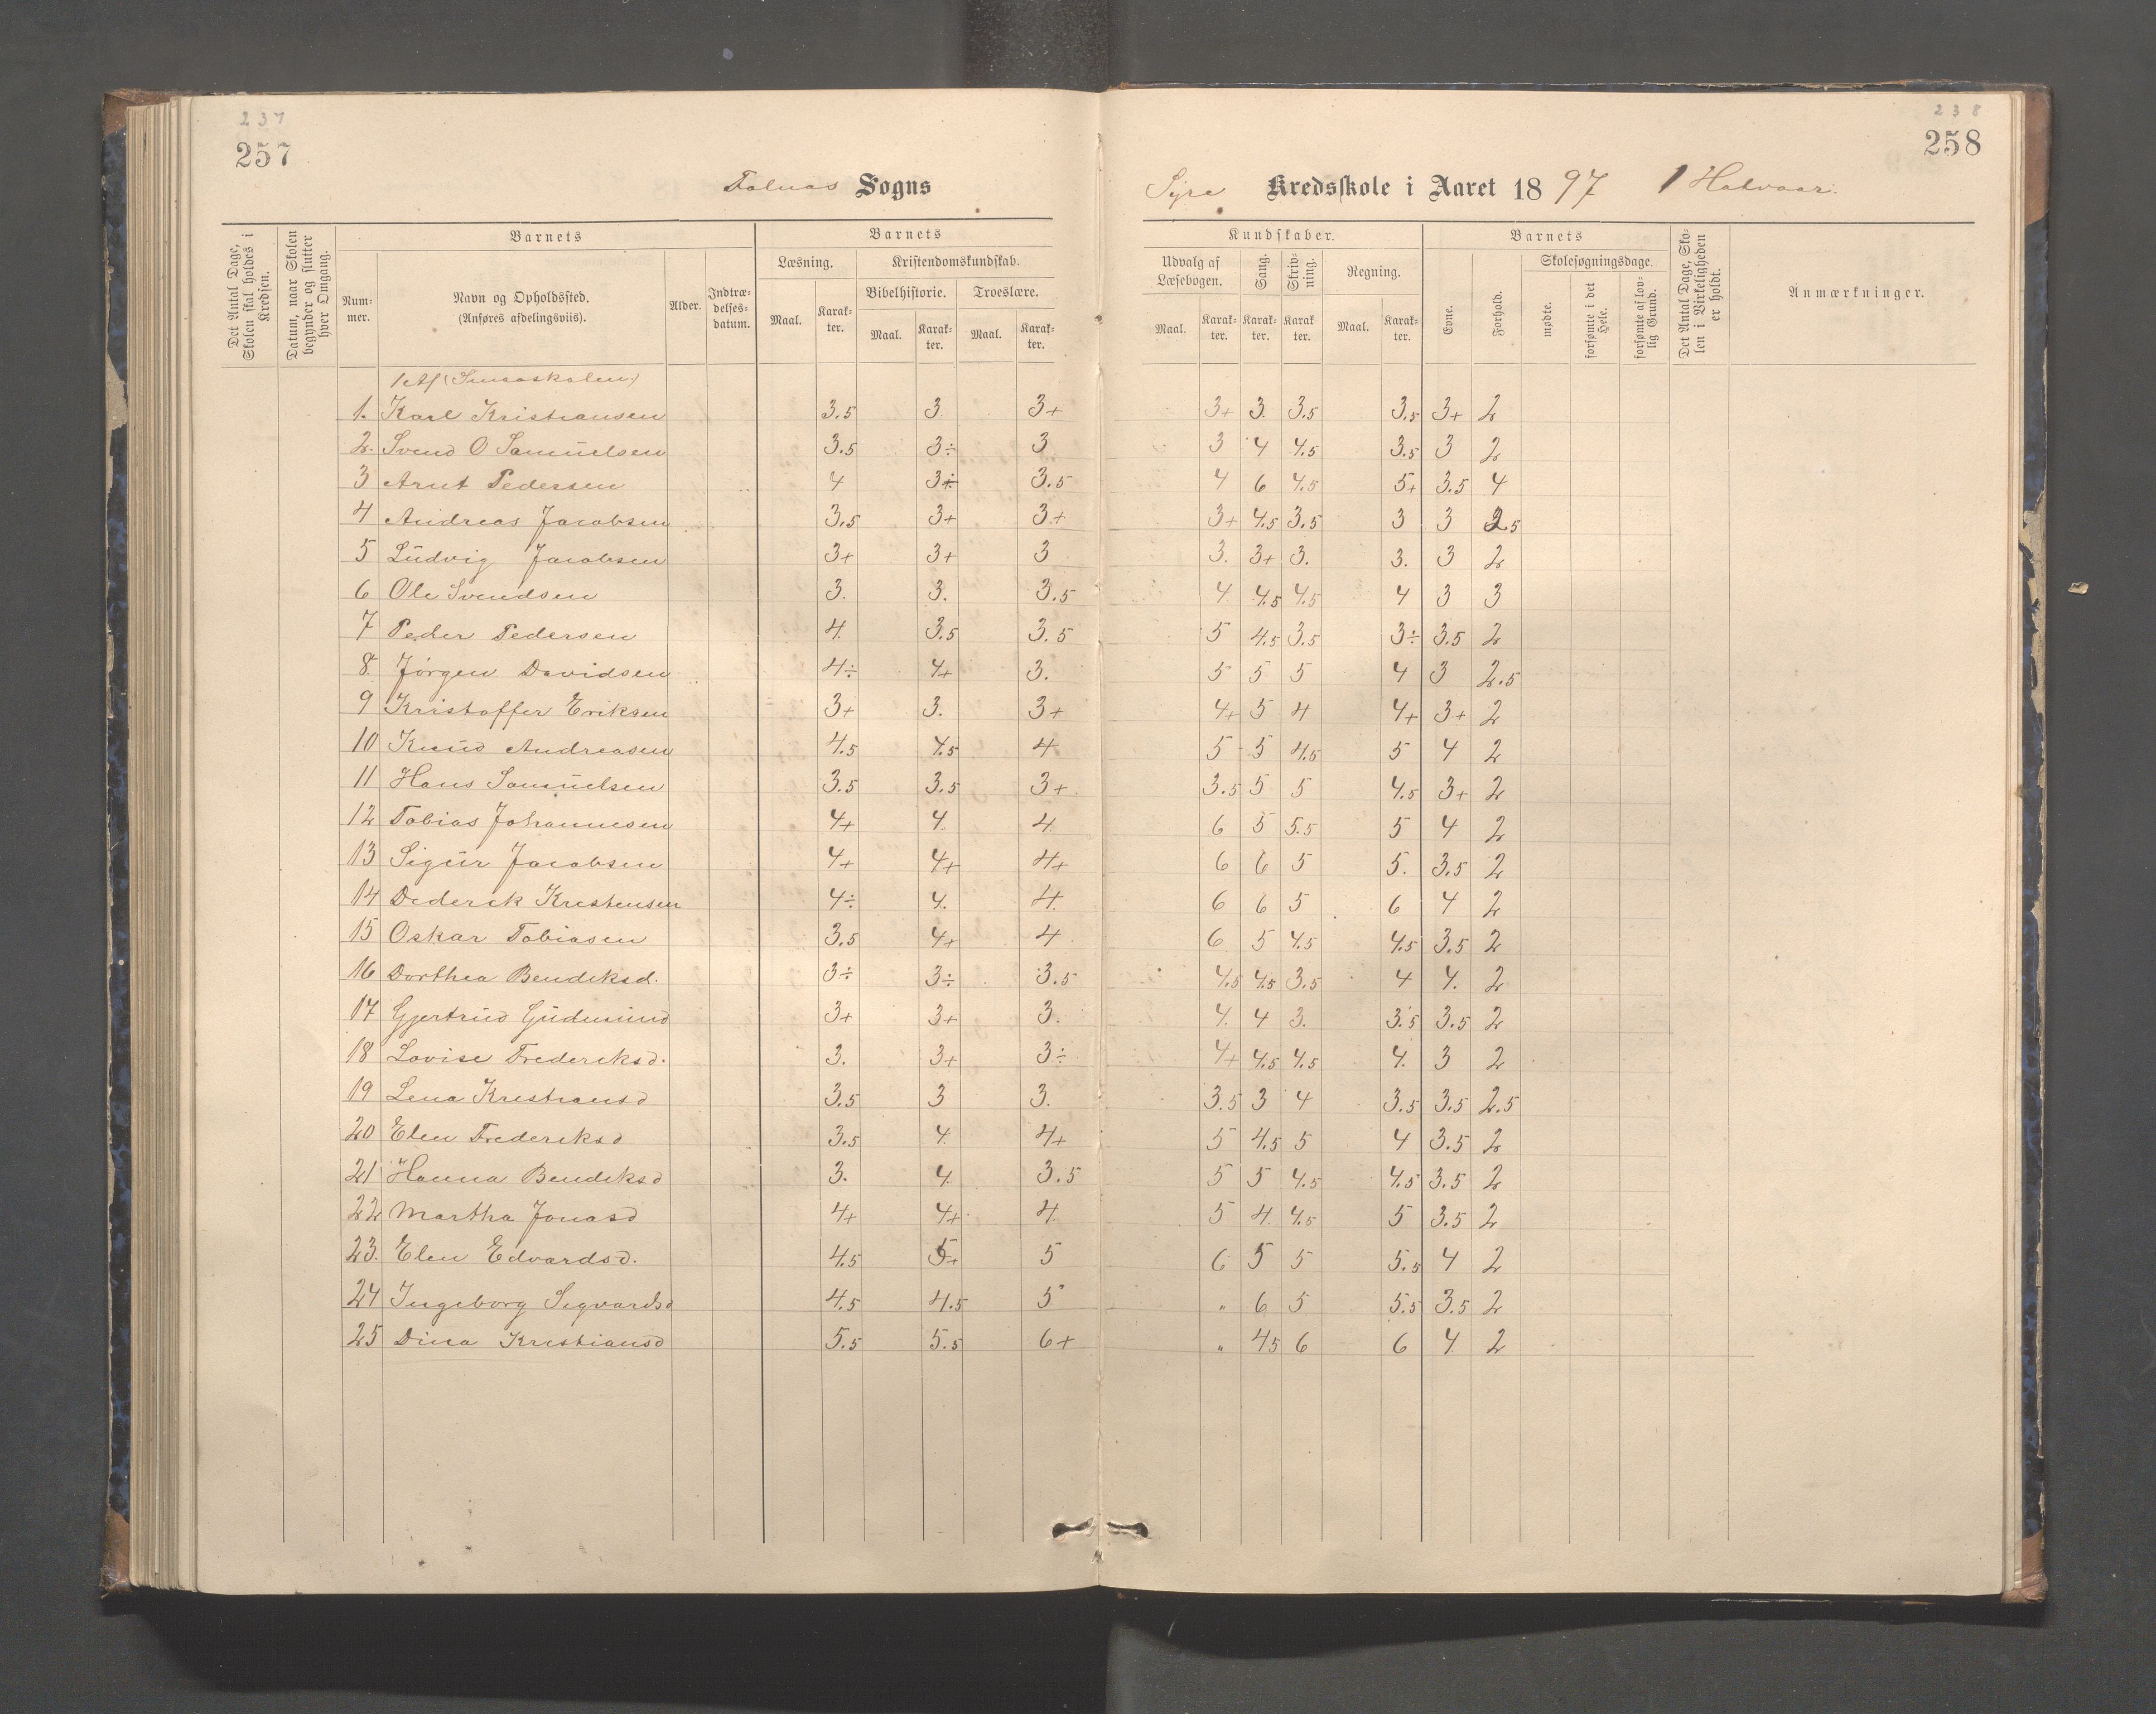 237
257
238
258
Falnæs Sogns
Syre Kredsskole i Aaret 1897 1 Halvaar.
Det Antal Dage, Skolen skal holdes i Kredsen.
Datum, naar Skolen begynder og slutter hver Omgang.
Barnets
Barnets
Kundskaber.
Barnets
Det Antal Dage, Skolen i Virkeligheden er holdt.
Anmærkninger.
Nummer.
Navn og Opholdssted. (Anføres afdelingsviis).
Alder.
Indtrædelses-datum.
Læsning.
Kristendomskundskab.
Bibelhistorie.
Troeslære.
Udvalg af Læsebogen.
Sang.
Skrivning.
Regning.
Evne.
Forhold.
Skolesøgningsdage.
mødte.
forsømte i det Hele.
forsømte af lovlig Grund.
Maal. Karakter. Maal. Karakter. Maal. Karakter. Maal. Karakter. Karakter. Karakter Maal. Karakter.
1 Af (Smaaskolen)
1. Karl Kristiansen 3.5 3 3+ 3+ 3. 3.5 3.5 3+ 2
2. Svend O Samuelsen 3.5 3÷ 3 3 4 4.5 3.5 3 2
3 Arnt Pedersen 4 3÷ 3.5 4 6 4.5 5+ 3.5 4
4 Andreas Jacobsen 3.5 3+ 3+ 3+ 4.5 3.5 3 3 2.5
5 Ludvig Jacobsen 3+ 3+ 3 3. 3+ 3. 3. 3 2
6 Ole Svendsen 3. 3. 3.5 4 4.5 4.5 4 3 3
7 Peder Pedersen 4. 3.5 3.5 5 4.5 3.5 3÷ 3.5 2
8. Jörgen Davidsen 4÷ 4+ 3. 5 5 5 4 3 2.5
9 Kristoffer Eriksen 3+ 3. 3+ 4+ 5 4 4+ 3+ 2
10 Knud Andreasen 4.5 4.5 4 5 5 4.5 5 4 2
11 Hans Samuelsen 3.5 3.5 3+ 3.5 5 5 4.5 3+ 2
12 Tobias Johannesen 4+ 4. 4. 6 5 5.5 5 4 2
13 Sigur Jacobsen 4+ 4+ 4+ 6 6 5 5. 3.5 2
14 Dederik Kristensen 4÷ 4. 4. 6 6 5 6 4 2
15 Oskar Tobiasen 3.5 4+ 4 6 5 4.5 4.5 3.5 2
16 Dorthea Bendiksd. 3÷ 3÷ 3.5 4.5 4.5 3.5 4 4. 2
17 Gjertrud Gudmund 3+ 3+ 3. 4. 4 3. 3.5 3.5 2
18 Lovise Frederiksd. 3. 3+ 3÷ 4+ 4.5 4.5 4. 3 2
19 Lena Kristiansd 3.5 3 3. 3.5 3 4 3.5 3.5 2.5
20 Elen Frederiksd 3.5 4. 4+ 5 4.5 5 4 3.5 2
21 Hanna Bendiksd 3. 4. 3.5 5 5 4.5 4.5 3.5 2
22 Martha Jonasd 4+ 4+ 4. 5 4. 4.5 5 3.5 2
23. Elen Edvardsd. 4.5 5+ 5 6 5 5 5.5 4 2
24 Ingeborg Sigvardsd 4.5 4.5 5 " 6 5 5.5 3.5 2
25 Dina Kristiansd 5.5 5.5 6+ " 45 6 6 4. 2